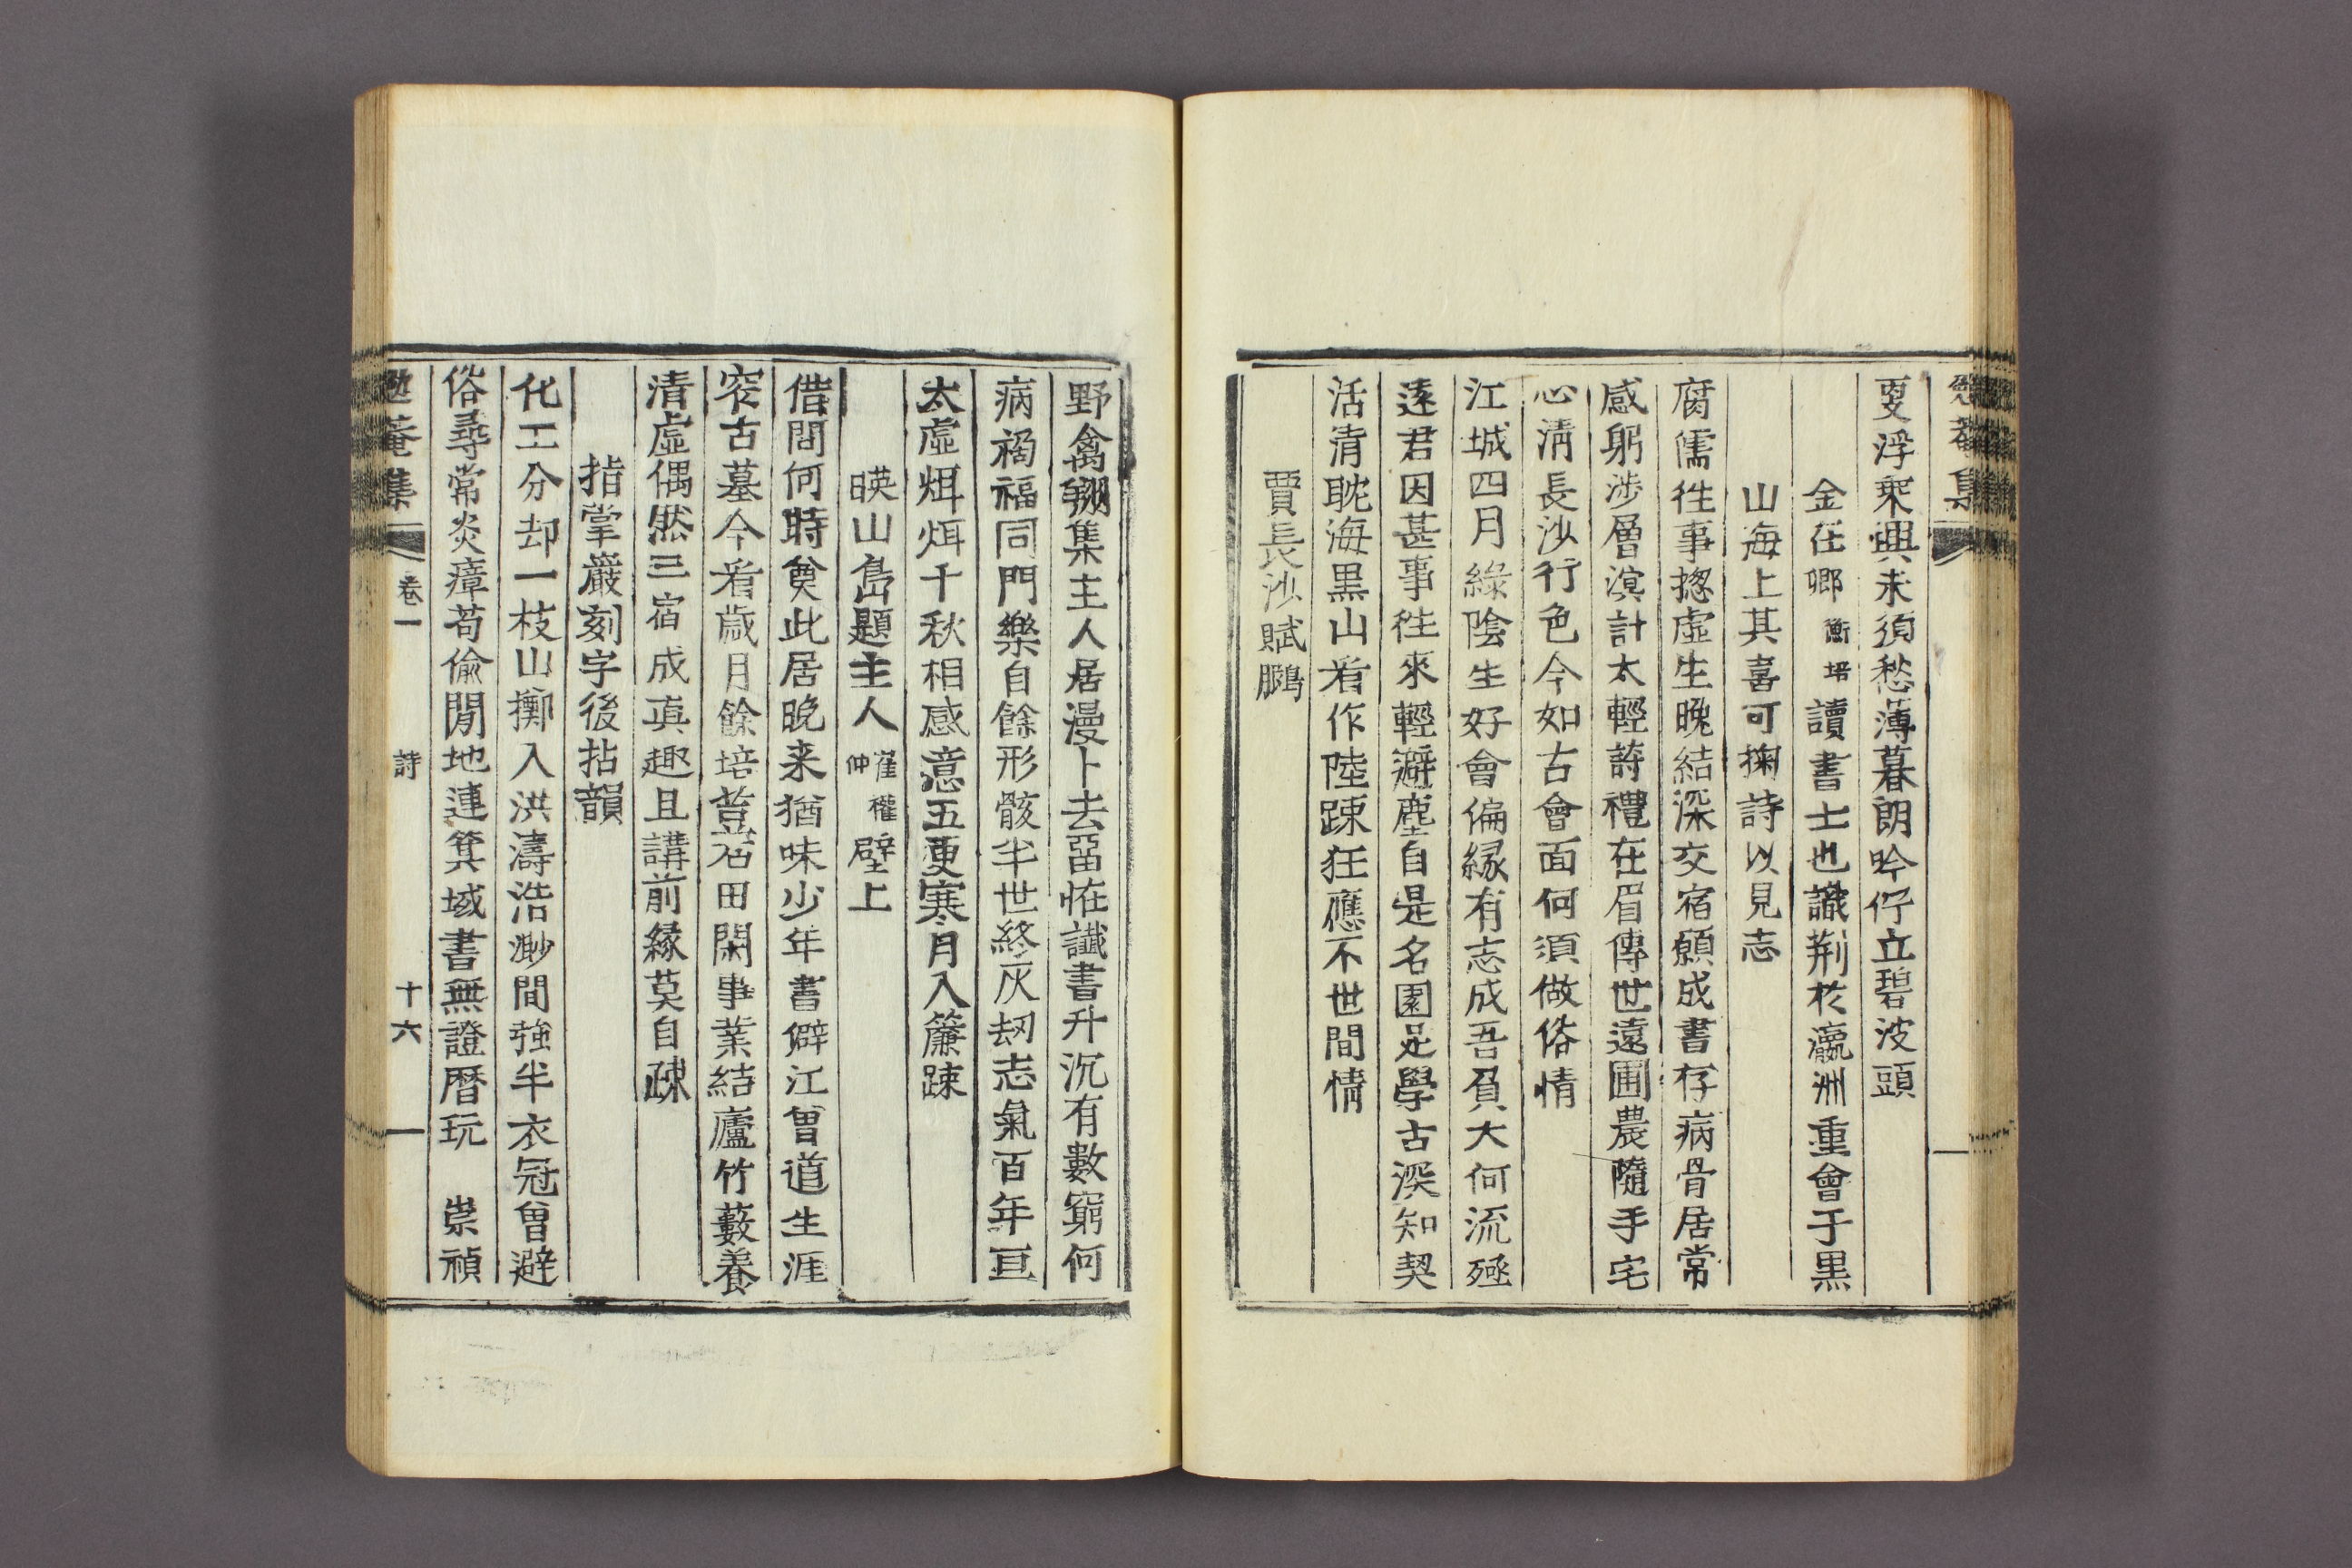 集
叟浮乘興未須愁薄暮朗吟佇立碧波頭
金在卿衡培讀書士也識荆於瀛洲重會于黑
山海上其喜可掬詩以見志
腐儒徃事揔虛生晚結深交宿願成書存病骨居常
感躬涉層溟計太輕詩禮在眉傳世遠圃農隨手宅
心淸長沙行色今如古會面何須做俗情
江城四月綠陰生好會偏緣有志成吾負大何流殛
遠君因甚事徃來輕避塵自是名園足學古深知契
活清眈海黑山看作陸踈狂應不世間情
賈長沙賦鵩
野禽翔集主人居漫卜去畱恠讖書升沉有數窮何
病禍福同門樂自餘形骸半世終灰刼志氣百年亘
太虛炬炬千秋相感意五更寒月入簾踈
暎山島題主人崔權仲壁上
借問何時奠此居晩来猶味少年書僻江曾道生涯
窄古墓今看歲月餘培荳石田閑事業結廬竹藪養
清虛偶然三宿成眞趣且講前緣莫自疎
指掌巖刻字後拈韻
化工分却一枝山擲入洪濤浩渺間強半衣冠曾避
俗尋常炎瘴苟偷閒地連箕域書無證曆玩 崇禎
菴集 卷一 詩 十六